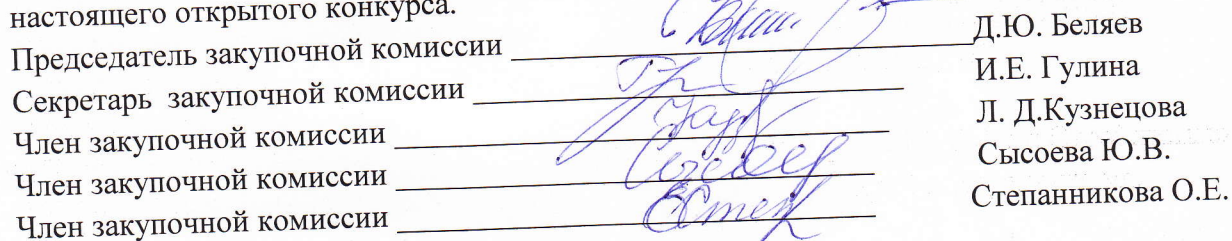 настоящего открытого конкурса.
Председатель закупочной комиссии Д.Ю. Беляев
Секретарь закупочной комиссии И.Е. Гулина
Член закупочной комиссии Л. Д.Кузнецова
Член закупочной комиссии Сысоева Ю.В.
Член закупочной комиссии Степанникова О.Е.